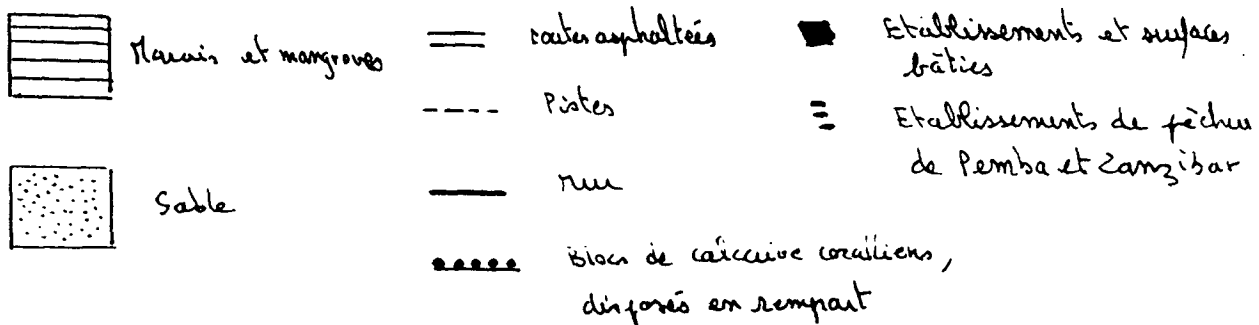 Marais et mangroves
Sable
routes asphaltées
Pistes
mur
Blocs de calcaire coralliens,
disposés en rempart
Etablissements et surfaces
bâties
Etablissements de pêcheurs
de Pemba et Zanzibar